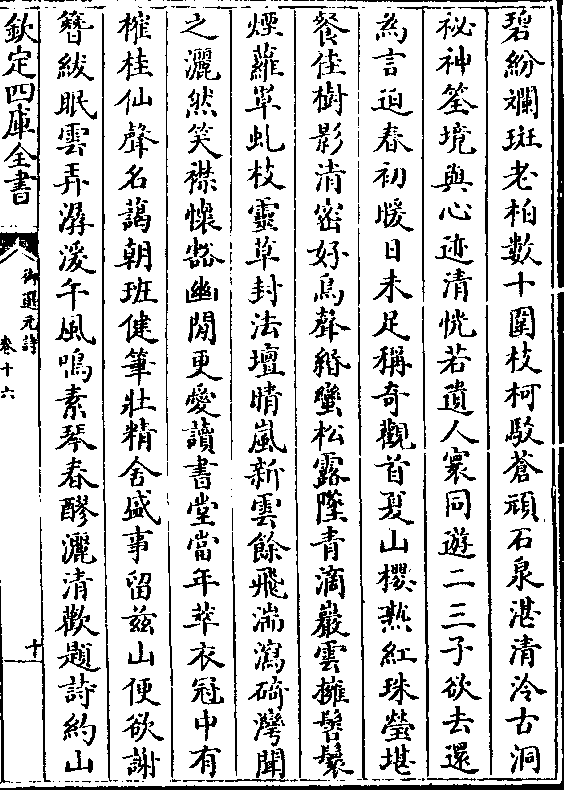 碧紛斕斑老柏數十圍枝柯駁蒼頑石泉湛清泠古洞
祕神筌境與心迹清恍若遺人寰同遊二三子欲去還
為言迫春初暖日未足稱奇觀首夏山櫻熟紅珠瑩堪
餐佳樹影清密好鳥聲緡蠻松露墜青滴巖雲擁髻鬟
煙蘿罩虬枝靈草封法壇晴嵐新雲餘飛湍瀉碕灣聞
之灑然笑襟懷豁幽閒更愛讀書堂當年萃衣冠中有
攉桂仙聲名藹朝班健筆壯精舍盛事留茲山便欲謝
簪紱眠雲弄潺湲午風鳴素琴春醪灑清歡題詩約山
欽定四庫全書
御選元詩
卷十六
十